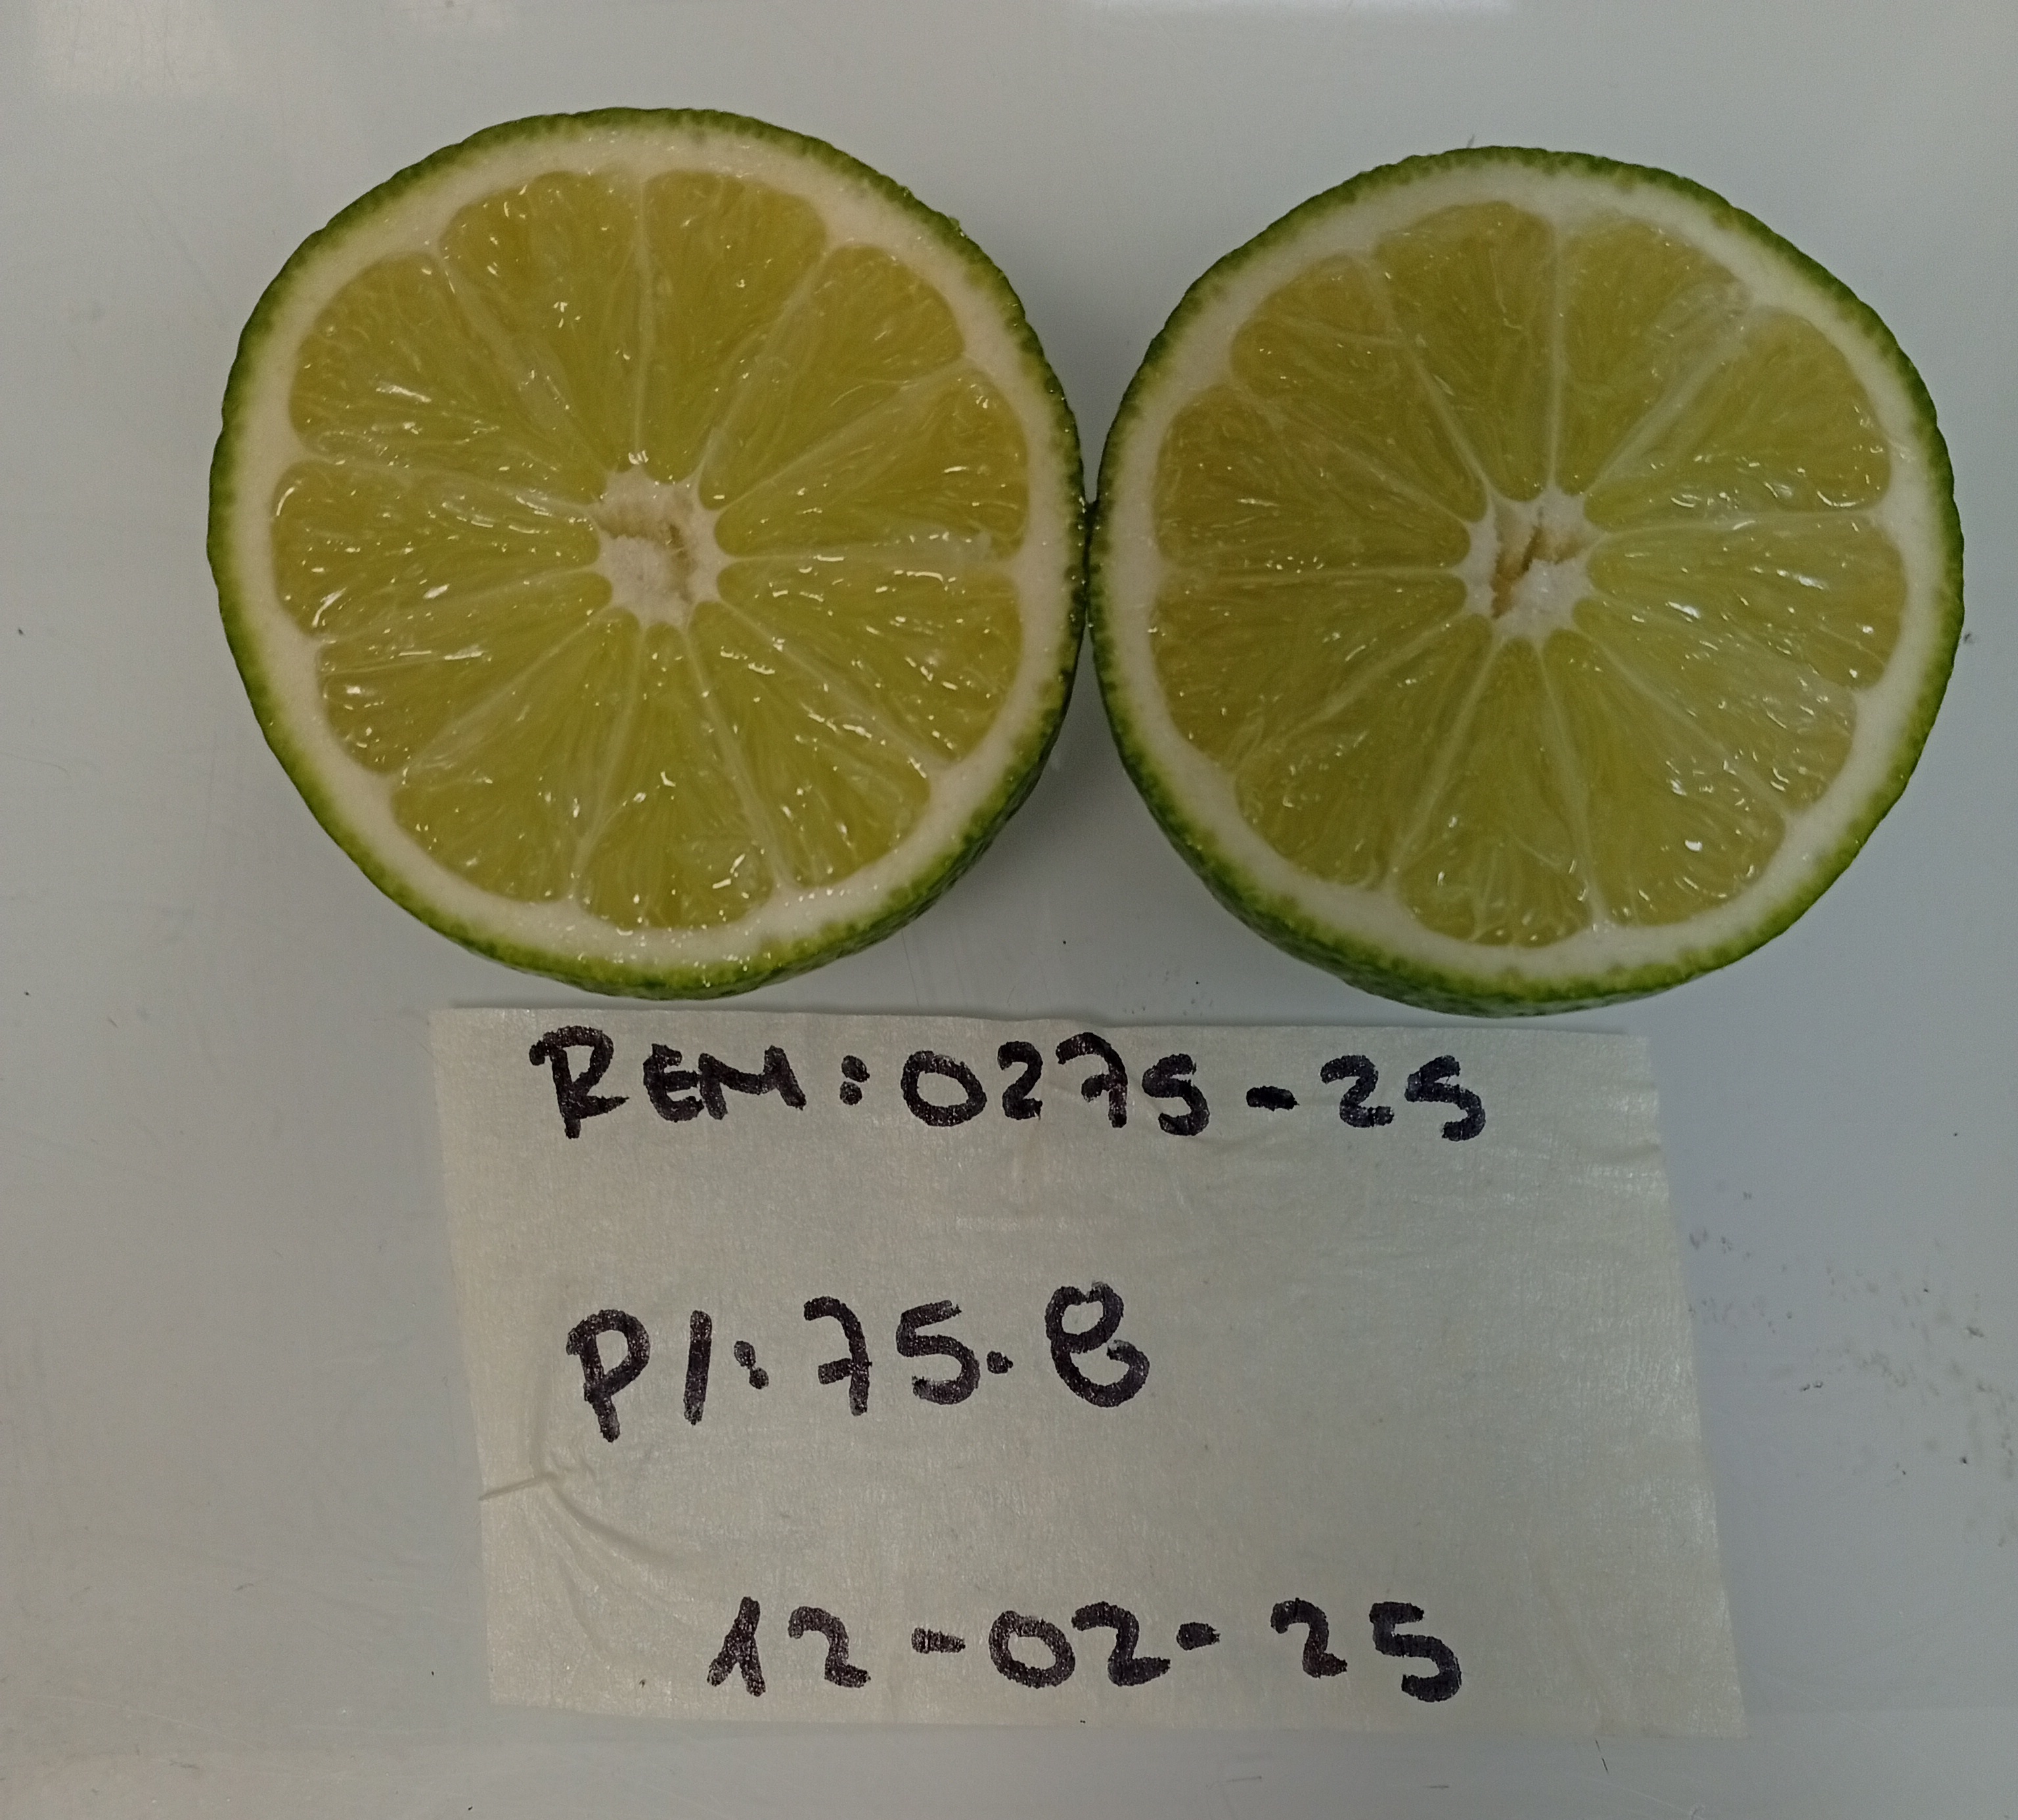 REM: 0275-25
P1: 75.8
12-02-25